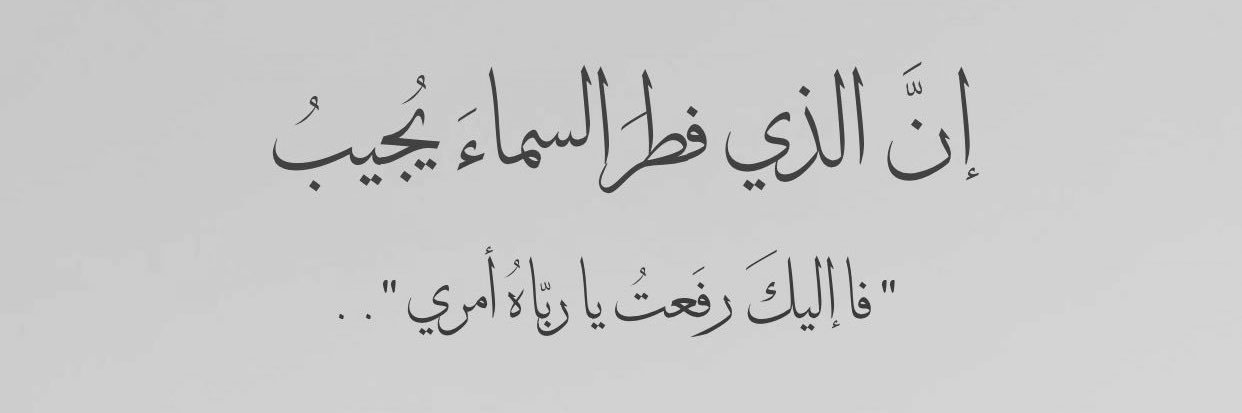 إنَّ الذي فطرَ السماءَ يُجيبُ
"فا إليكَ رفَعتُ يا ربّاهُ أمري" . .